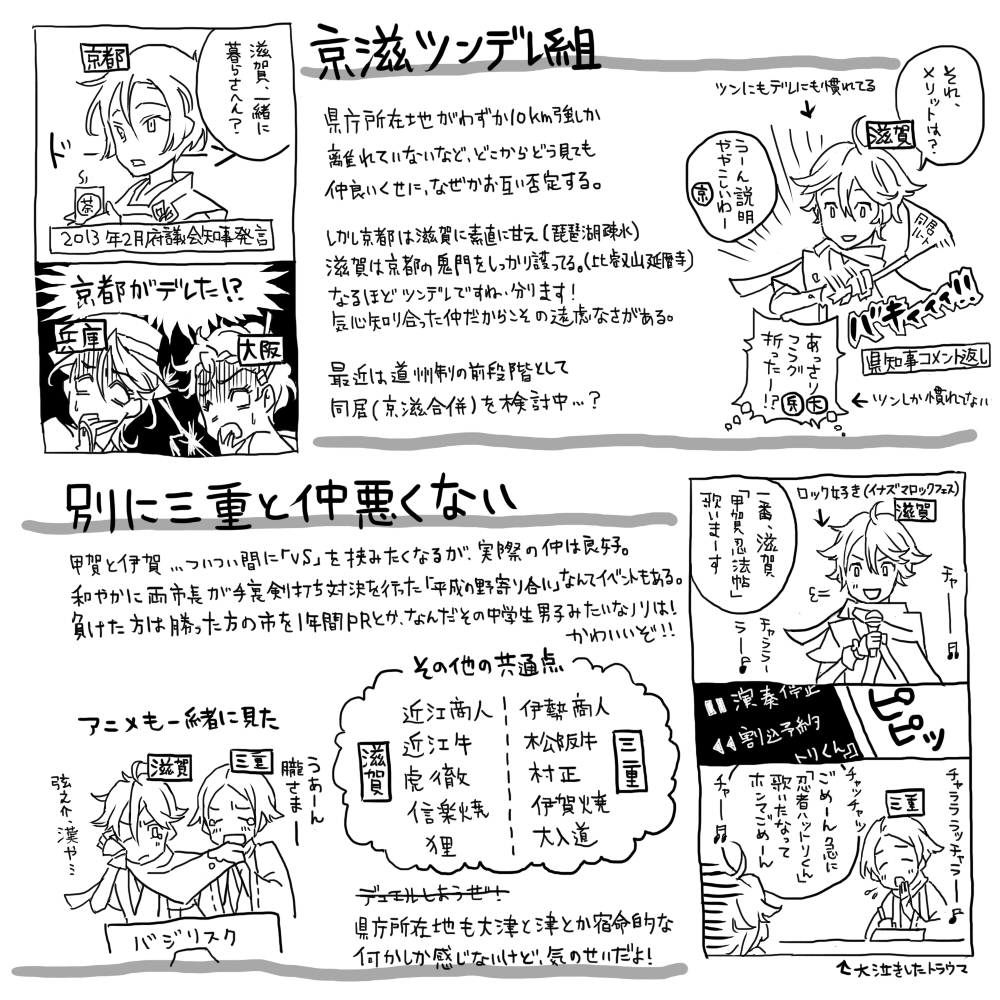 京滋ツンデレ組
京都
滋賀、一緒に
暮らさへん?
ドーン
茶
2013年2月府議会知事発言
京都がデレした!?
兵庫
大阪
県庁所在地がわずか10km強しか
離れていないなど、どこからどう見ても
仲良いくせに、なぜかお互い否定する。
しかし京都は滋賀に素直に甘え(琵琶湖疎水)
滋賀は京都の鬼門をしっかり護ってる。(比叡山延暦寺)
なるほどツンデレですね、分ります!
気心知り合った仲だからこその遠慮なさがある。
最近は道州制の前段階として
同居(京滋合併)を検討中…?
それ、
メリットは?
ツンにもデレにも慣れてる
滋賀
うーん説明
ややこしいわー
京
同居
ルート
バキィィィ!!
県知事コメント返し
あっさり
フラグ
折ったー!?
兵
大
←ツンしか慣れてない
別に三重と仲悪くない
甲賀と伊賀…ついつい間に「VS」を挟みたくなるが、実際の仲は良好。
和やかに両市長が手裏剣打ち対決を行った「平成の野寄り合い」なんてイベントもある。
負けた方は勝った方の市を1年間PRとか、なんだその中学生男子みたいなノリは!
かわいいぞ!!
アニメも一緒に見た
滋賀
三重
うぁーん
朧さまー
弦之介、漢や…
バジリスク
その他の共通点
滋賀
近江商人
近江牛
虎徹
信楽焼
狸
三重
伊勢商人
松阪牛
村正
伊賀焼
大入道
デュエルしようぜ!
県庁所在地も大津と津とか宿命的な
何かしか感じないけど、気のせいだよ!
ロック好き(イナズマロックフェス)
滋賀
一番、滋賀
「甲賀忍法帖」
歌いまーす
チャーー♫
チャララー
ラー♪
演奏停止
割込予約
トリくん』
ピピッ
三重
ごめーん急に
「忍者ハットリくん」
歌いたなって
ホンマごめーん
チャッチャッ
チャー♫
チャラララッチャラー♪
大泣きしたトラウマ